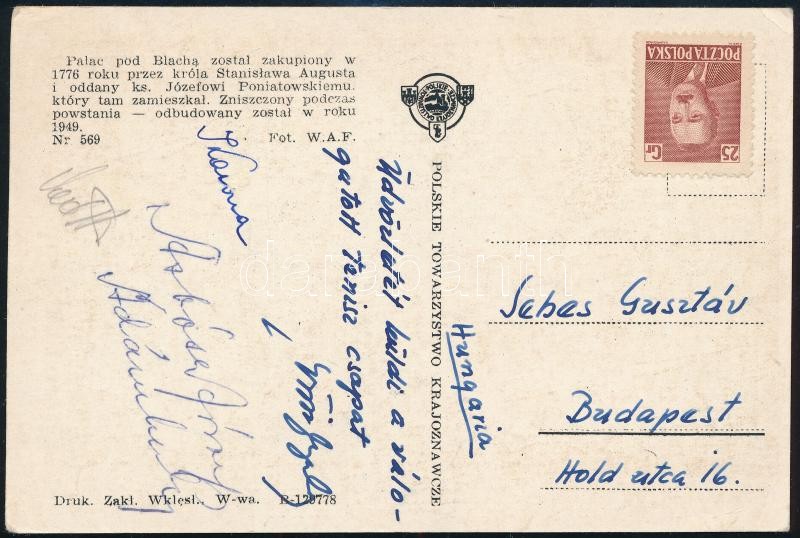 Pałac pod Blachą został zakupiony w
1776 roku przez króla Stanisława Augusta
i oddany ks. Józefowi Poniatowskiemu.
który tam zamieszkał. Zniszczony podczas
powstania — odbudowany został w roku
1949.
Nr 569 Fot. W.A.F.
Üdvözletét küldi a válo-
gatott tenisz csapat
Asbóth József
Ádám
Druk. Zakł. Wklęsł.. W-wa. R-129778
POLSKIE TOWARZYSTWO KRAJOZNAWCZE
POCZTA POLSKA
25 Gr
Sebes Gusztáv
Hungaria
Budapest
Hold utca 16.
darabanth